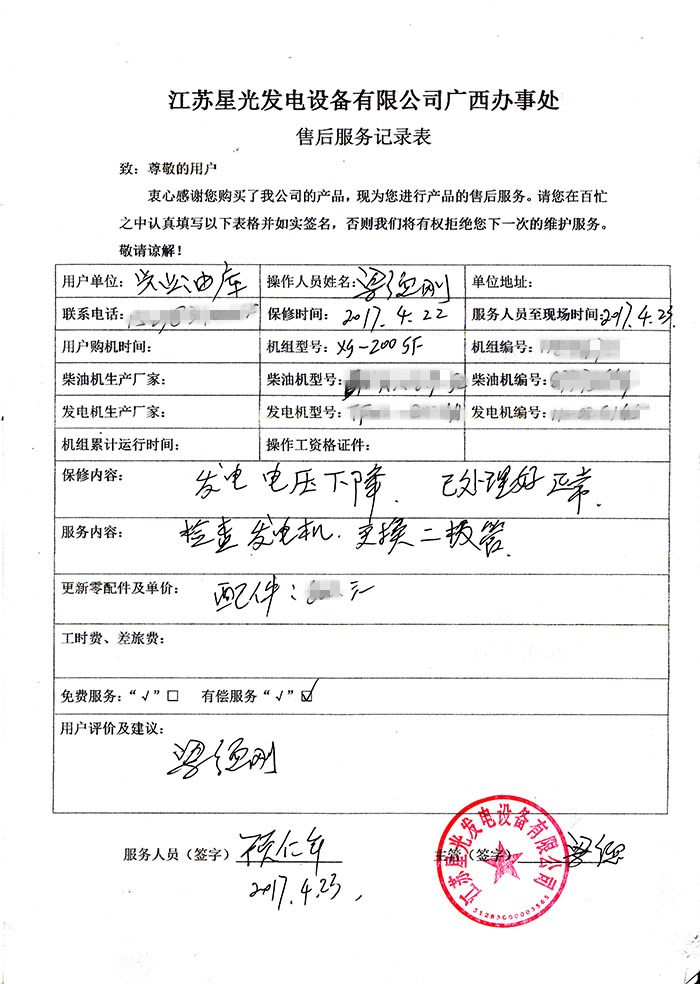 江苏星光发电设备有限公司广西办事处
售后服务记录表
致：尊敬的用户
衷心感谢您购买了我公司的产品，现为您进行产品的售后服务。请您在百忙
之中认真填写以下表格并如实签名，否则我们将有权拒绝您下一次的维护服务。
敬请谅解！
用户单位： 油库 操作人员姓名： 单位地址：
联系电话： 保修时间：2017.4.22 服务人员至现场时间：2017.4.23
用户购机时间： 机组型号：XG-200GF 机组编号：
柴油机生产厂家： 柴油机型号： 柴油机编号：
发电机生产厂家： 发电机型号： 发电机编号：
机组累计运行时间： 操作工资格证件：
保修内容： 发电电压下降、已处理好正常.
服务内容： 检查发电机. 更换二极管.
更新零配件及单价： 配件：
工时费、差旅费：
免费服务：“√”□ 有偿服务“√”☑
用户评价及建议：
服务人员（签字） 主管（签字）
2017.4.23
江苏星光发电设备有限公司
3128300003565